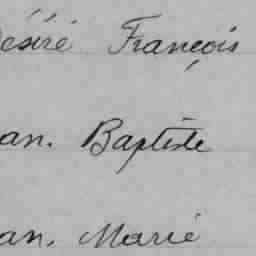 ésiré François
an. Baptiste
an. Marie